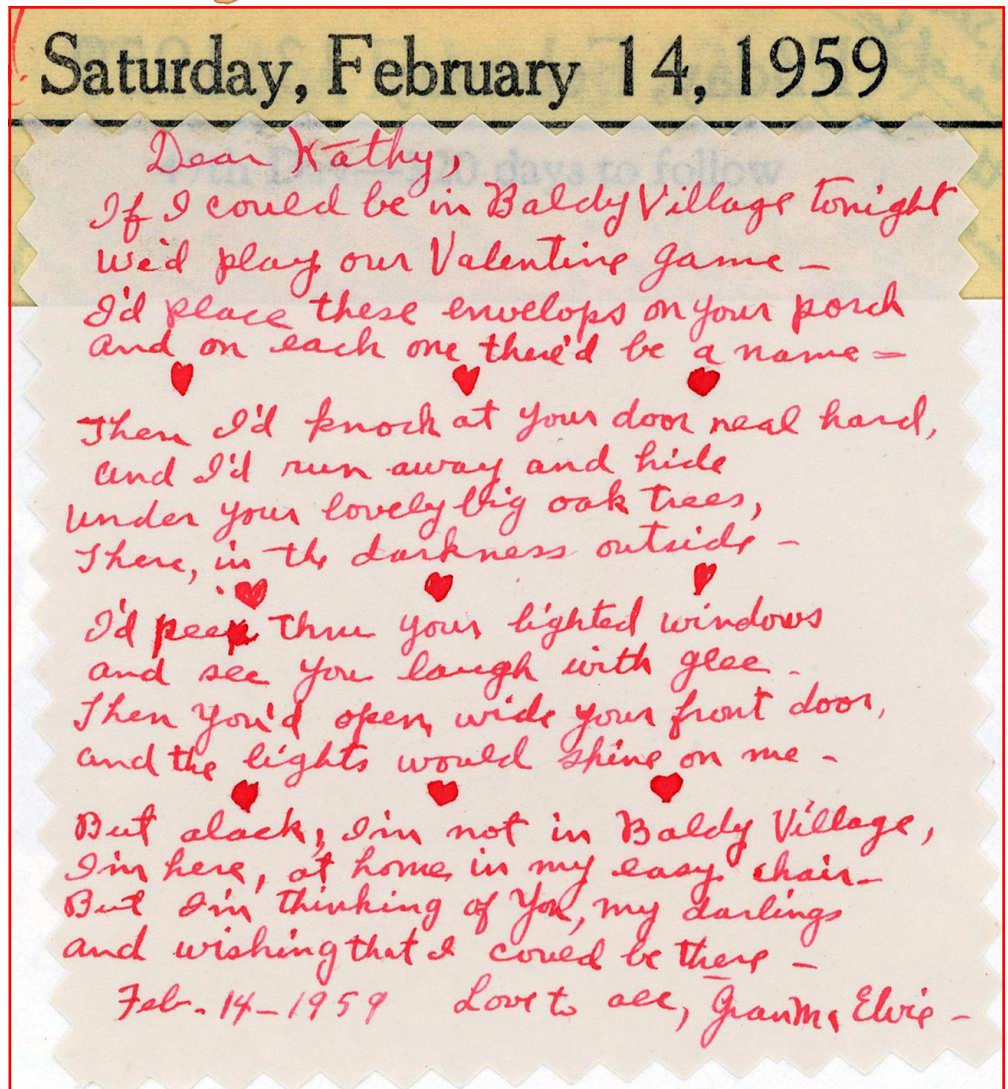 Saturday, February 14, 1959
45th Day—320 days to follow
Dear Kathy,
If I could be in Baldy Village tonight
we'd play our Valentine game –
I'd place these envelops on your porch
and on each one there'd be a name –
Then I'd knock at your door real hard,
and I'd run away and hide
under your lovely big oak trees,
There, in the darkness outside –
I'd peep thru your lighted windows
and see you laugh with glee –
Then you'd open wide your front door,
and the lights would shine on me –
But alack, I'm not in Baldy Village,
I'm here, at home in my easy chair –
But I'm thinking of You, my darlings
and wishing that I could be there –
Feb. 14 – 1959 Love to all, GranMa Elvie –